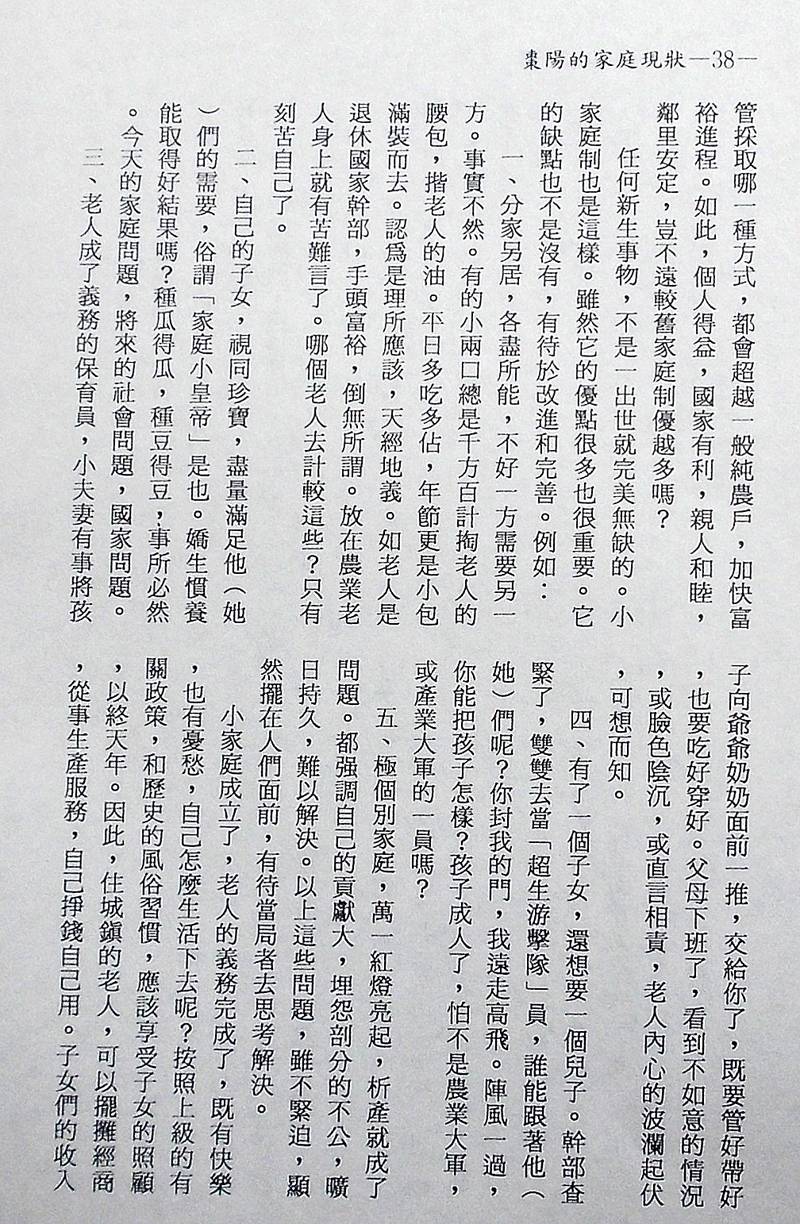 棗陽的家庭現狀—38—
管採取哪一種方式，都會超越一般純農戶，加快富
裕進程。如此，個人得益，國家有利，親人和睦，
鄰里安定，豈不遠較舊家庭制優越多嗎？
任何新生事物，不是一出世就完美無缺的。小
家庭制也是這樣。雖然它的優點很多也很重要。它
的缺點也不是沒有，有待於改進和完善。例如：
一、分家另居，各盡所能，不好一方需要另一
方。事實不然。有的小兩口總是千方百計掏老人的
腰包，揩老人的油。平日多吃多佔，年節更是小包
滿裝而去。認爲是理所應該，天經地義。如老人是
退休國家幹部，手頭富裕，倒無所謂。放在農業老
人身上就有苦難言了。哪個老人去計較這些？只有
刻苦自己了。
二、自己的子女，視同珍寶，盡量滿足他（她
）們的需要，俗謂「家庭小皇帝」是也。嬌生慣養
能取得好結果嗎？種瓜得瓜，種豆得豆，事所必然
。今天的家庭問題，將來的社會問題，國家問題。
三、老人成了義務的保育員，小夫妻有事將孩
子向爺爺奶奶面前一推，交給你了，既要管好帶好
，也要吃好穿好。父母下班了，看到不如意的情況
，或臉色陰沉，或直言相責，老人內心的波瀾起伏
，可想而知。
四、有了一個子女，還想要一個兒子。幹部查
緊了，雙雙去當「超生游擊隊」員，誰能跟著他（
她）們呢？你封我的門，我遠走高飛。陣風一過，
你能把孩子怎樣？孩子成人了，怕不是農業大軍，
或產業大軍的一員嗎？
五、極個別家庭，萬一紅燈亮起，析產就成了
問題。都强調自己的貢獻大，埋怨剖分的不公，曠
日持久，難以解決。以上這些問題，雖不緊迫，顯
然擺在人們面前，有待當局者去思考解決。
小家庭成立了，老人的義務完成了，既有快樂
，也有憂愁，自己怎麼生活下去呢？按照上級的有
關政策，和歷史的風俗習慣，應該享受子女的照顧
，以終天年。因此，住城鎭的老人，可以擺攤經商
，從事生產服務，自己掙錢自己用。子女們的收入